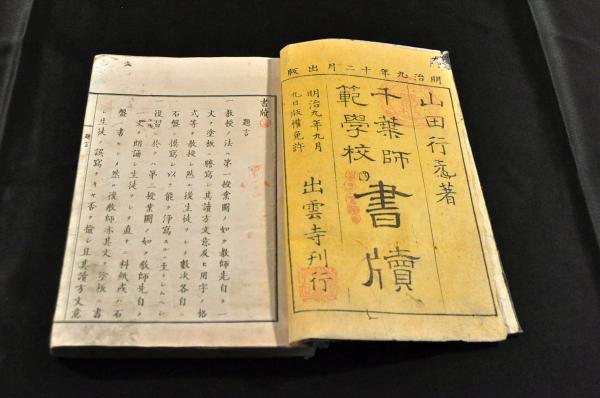 明治九年十二月出版
山田行著
千葉師範學校
書牘
明治九年九月
九日版權免許
出雲寺刊行
書牘
題言
一教授ノ法ハ第一授業圖ノ如ク教師先自ラ一
文ヲ塗板ニ謄寫シ其讀方文意及ヒ用字ノ格
式等ヲ教授シ然ル後生徒ヲシテ數次各自ニ
石盤ニ摸寫シ以テ能ク淨寫スルニ至ラシムヘシ
一復習ニ於テハ第二授業圖ノ如ク教師自ラ一
文ヲ朗誦シ生徒ヲシテ直チニ料紙或ハ石
盤ニ書セシメ然ル後教師亦其文ヲ塗板ニ書
シ生徒ノ誤寫アルヤ否ヲ檢シ且其讀方文意
題言